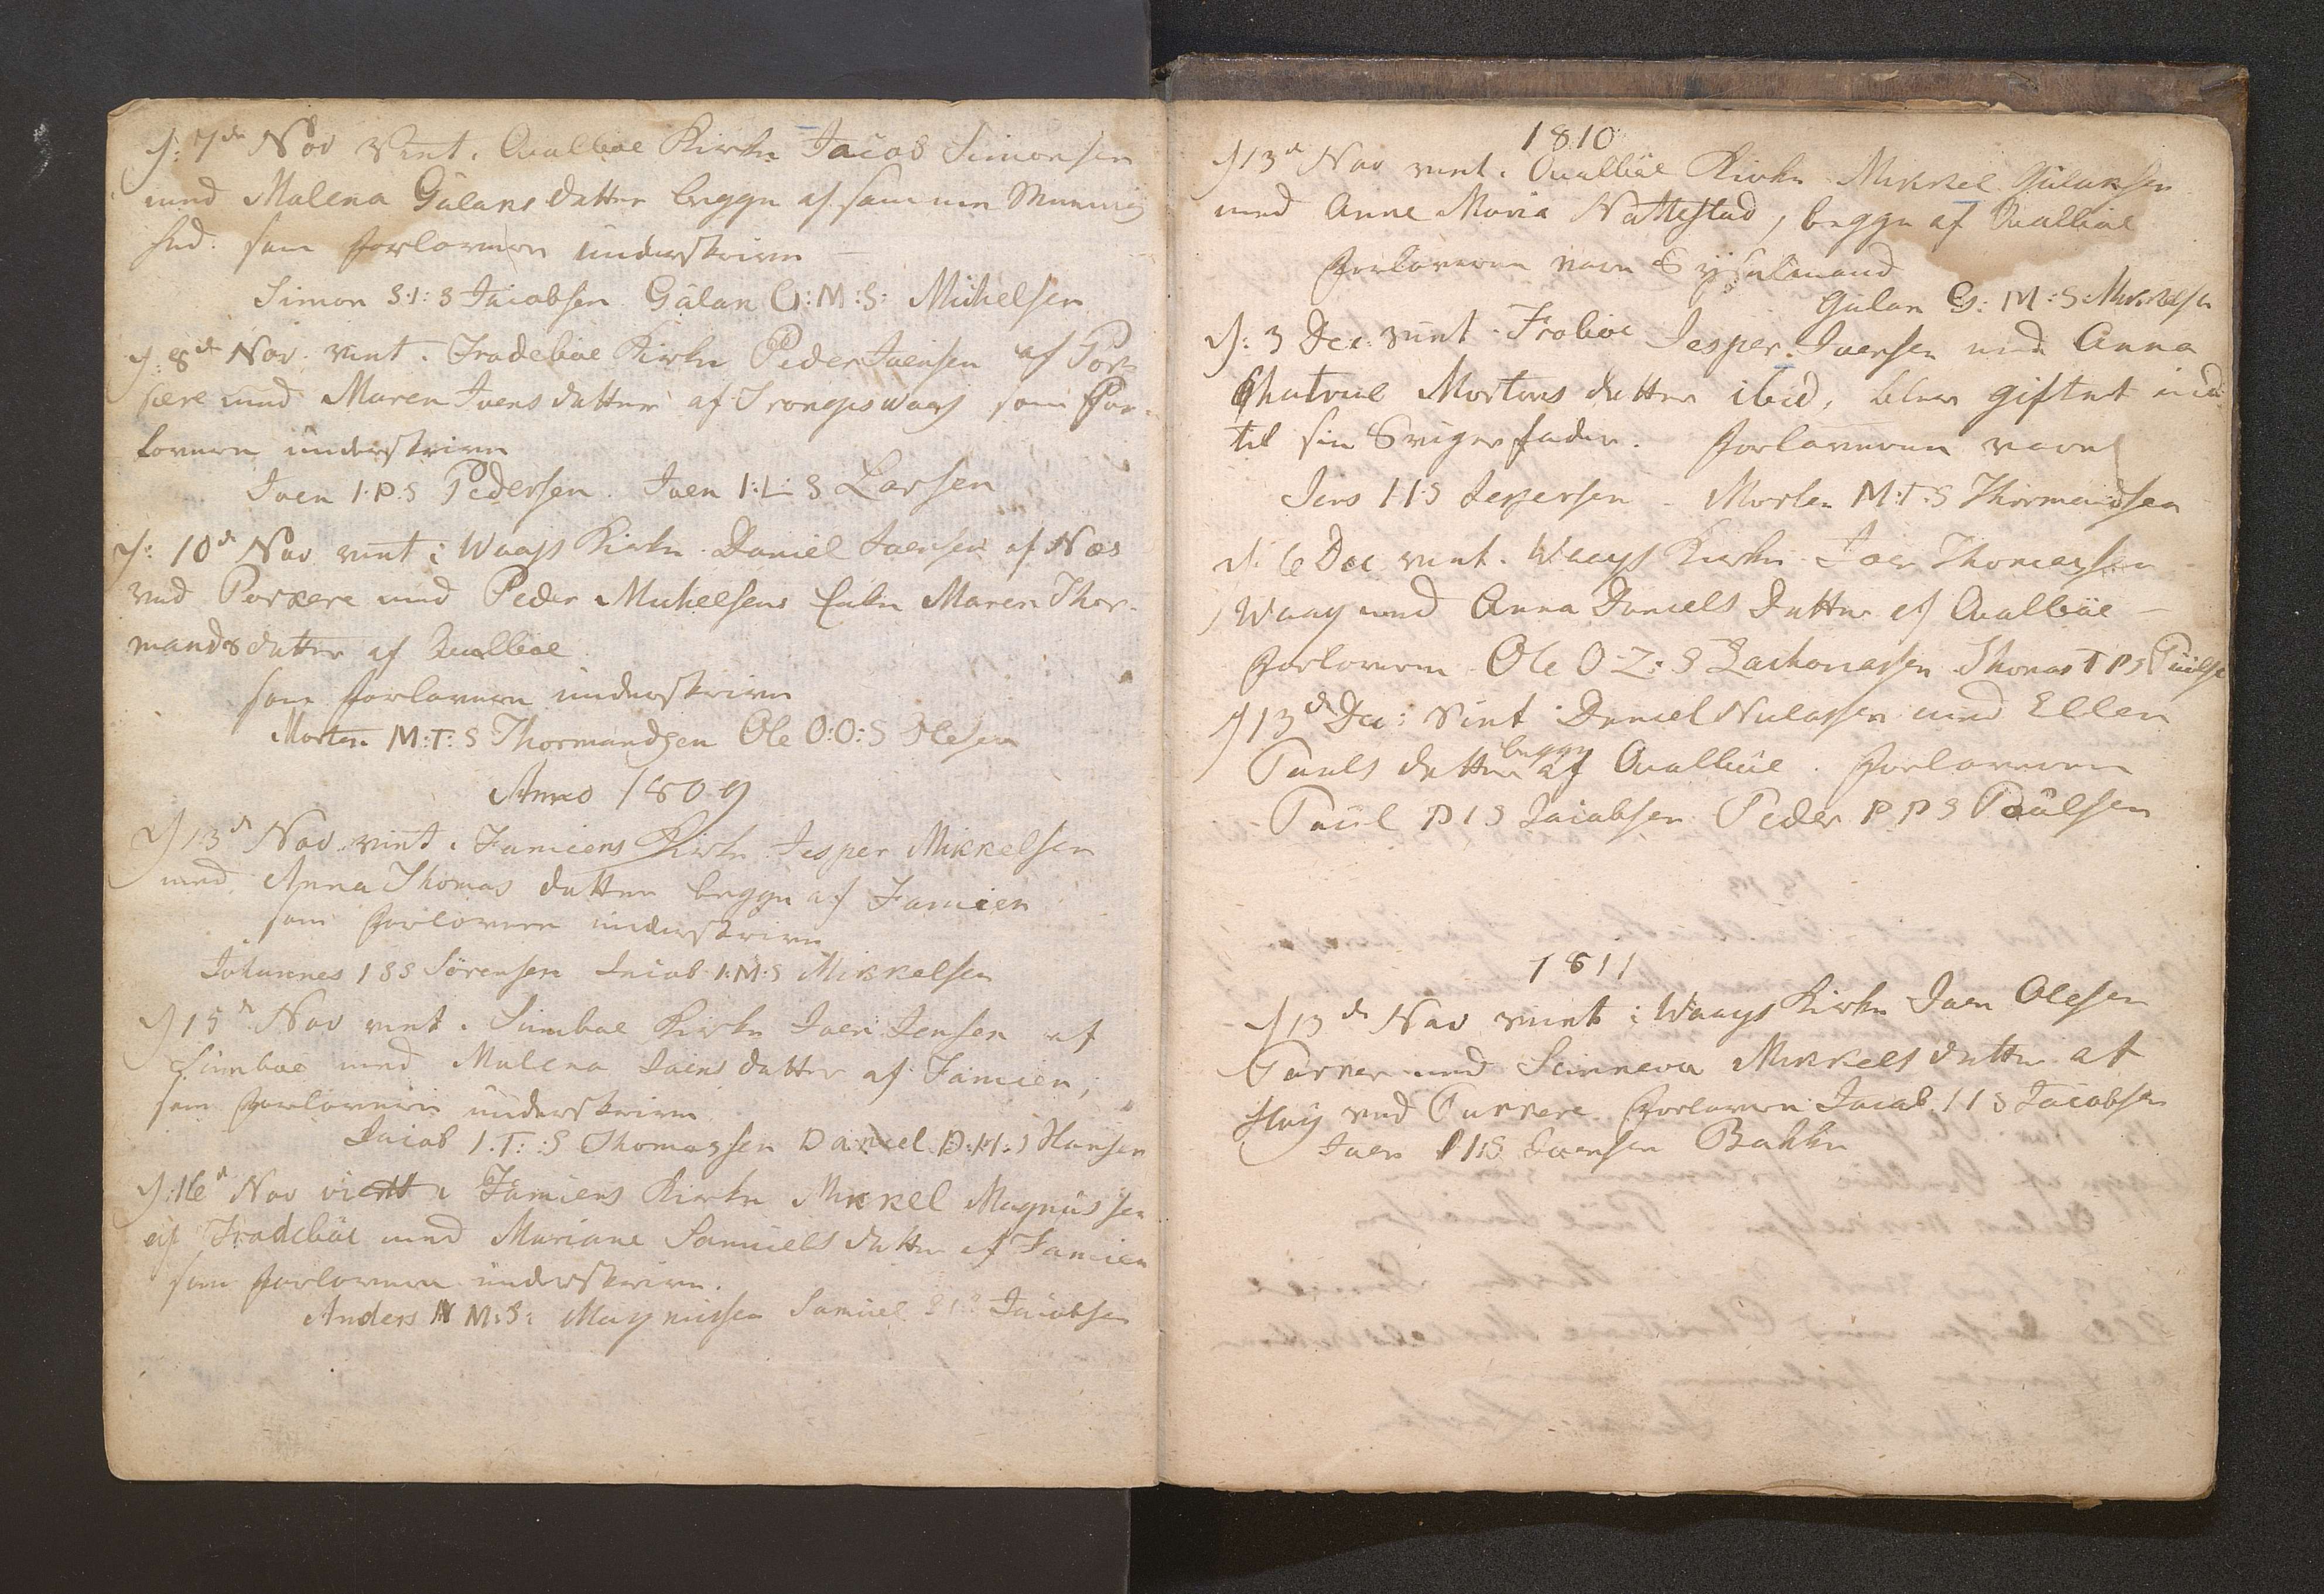 d: 7de Nov viet i Qvalböe Kirke Jacob Simonsen
med Malena Gulaks datter begge af samme Mennig
hed. som forlovere underskriver
Simon S:I:S Jacobsen Gulak G:M:S: Michelsen
d: 8de Nov. viet i Frodeböe Kirke Peder Joensen af Por-
kere med Maren Joens datter af Trongiswaag som For-
lovere underskriver
Joen I:P:S Pedersen. Joen I:L:S Larsen
d: 10de Nov viet i Waags Kirke Daniel Joensen af Næs
ved Porkere med Peder Michelsens Enke Maren Thor-
mands datter af Qvalböe
som forlovere underskriver
Morten M:T:S Thormandsen Ole O:O:S Olesen
Anno 1809
d 13de Nov viet i Famiens Kirke Jesper Mikkelsen
med Anna Thomas datter begge af Famien
som forlovere underskriver
Johannes I S S Sörensen Jacob I:M:S Mikkelsen
d 15de Nov viet i Sumboe Kirke Joen Jensen af
Sumboe med Malena Joens datter af Famien,
som forlovere underskriver
Jacob I.T::S Thomassen Daniel D:H:S Hansen
d: 16de Nov viett i Famiens Kirke Mikkel Magnussen
af Frodeböe med Mariane Samuels datter af Famien
som forlovere underskriver.
Anders A M:S: Magnussen Samuel S I S Jacobsen
1810
d 13de Nov viet i Qvalböe Kirke Mikkel Gulaksen
med Anna Maria Nattestad, begge af Qvalböe
Forloveren være Sysselmand
Gulak G: M:S: Mikkelsen
d: 3 Dec. viet i Froböe Jesper Joensen med Anna
Chatrine Mortens datter ibid, blev giftet ind
til sin Svigerfader. Forloveren være
Jens I I S Jespersen - Morten M:T:S Thormandsen
d. 6 Dec viet i Waags Kirke Joen Thomassen
i Waag med Anna Daniels datter af Qvalböe -
Forlovere Ole O Z:S Zachariassen Thomas T P S Paulse
d 13de Dec: viet Daniel Niclassen med Ellen
Pauls datter begge af Qvalböe. Forloveren
Paul P I S Jacobsen Peder P P S Paulsen
1811
d 13de Nov viet i Waags Kirke Joen Olesen
Porker med Sunneva Mikkels datter af
Hug ved Porkere Forlovere Jacob I I S Jacobsen
Joen I I:S Joensen Bakke